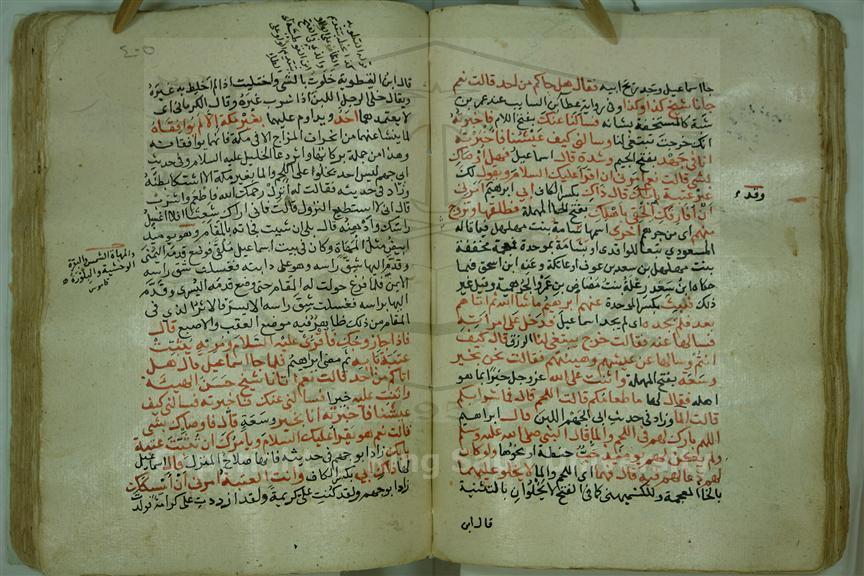 جا اسماعيل وجد ريح ابيه فقال هل جاكم من احد قالت نعم
جانا شيخ كذا وكذا وفي رواية عطا بن السايب عند عمر بن
شبة كالمستخفة بشانه فسالنا عنك بفتح اللام فاخبرته
انك خرجت تبتغي لنا وسالني كيف عيشنا فاخبرته
انا في جهد بفتح الجيم وشدة قال اسماعيل فهل اوصاك
بشي قالت نعم امرني ان اقرا عليك السلام ويقول لك
غير عتبة بابك قال ذاك بكسر الكاف ابي ابرهيم امرني
ان افارقك الحقي باهلك بفتح الحا المهملة فطلقها وتزوج
منهم اي من جرهم اخرى اسمها سامة بنت مهلهل فيما قاله
المسعودي تبعا للواقدي او بشامة بموحدة فمعجمة مخففة
بنت مهلهل بن سعد بن عوف او عاتكة وعند ابن اسحق فيما
حكاه ابن سعد رعلة بنت مضاض بن عمرو الجرهمية وقيل غير
ذلك فلبث بكسر الموحدة عنهم ابرهيم ما شا الله ثم اتاهم
بعد فلم يجده اي لم يجد اسماعيل فدخل على امراته
فسالها عنه فقالت خرج يبتغي لنا الرزق قال كيف
انتم وسالها عن عيشهم وهيئتهم فقالت نحن بخير
وسعة بفتح المهملة واثنت على الله عز وجل خيرا بما هو
اهله فقال لها ما طعامكم قالت اللحم قال فما شرابكم
قالت الما وزاد في حديث ابي الجهم اللبن قال ابراهيم
اللهم بارك لهم في اللحم والما قال النبي صلى الله عليه وسلم
ولم يكن لهم يومئذ حب حنطة او نحوها ولو كان
لهم دعا لهم فيه قال فهما اي اللحم والما لا يخلو عليهما
بالخا المعجمة وللكشميهني كما في الفتح لا يخلوان بالتثنية
قال ابن
وقد
٤٠٥
قال ابن القوطية خلوت بالشي واختليت اذا لم اخلط به غيره
ويقال خلى الرجل اللبن اذا شرب غيره وقال الكرماني اي
لا يعتمدهما احد ويداوم عليهما بغير مكة الا لم يوافقاه
لما ينشا عنهما من انحراف المزاج الا في مكة فانهما يوافقانه
وهذا من جملة بركاتها واثر دعا الخليل عليه السلام وفي حديث
ابي جهم ليس احد يخلو على اللحم والما بغير مكة الا اشتكى بطنه
وزاد في حديثه فقالت له انزل رحمك الله فاطعم واشرب
قال اني لا استطيع النزول قالت فاني اراك شعثا افلا اغسل
راسك وادهنه قال بلى ان شيت فجاته بالمقام وهو يوميذ
ابيض مثل المهاة وكان في بيت اسماعيل ملقى فوضع قدمه اليمنى
وقدم اليها شق راسه وهو على دابته فغسلت شق راسه
الايمن فلما فرغ حولت له المقام حتى وضع قدمه اليسرى وقدم
اليها براسه فغسلت شق راسه الايسر فالاثر الذي في
المقام من ذلك ظاهر فيه موضع العقب والاصبع قال
فاذا جا زوجك فاقرئي عليه السلام ومريه يثبت
عتبة بابه ثم مضى ابراهيم فلما جا اسماعيل قال هل
اتاكم من احد قالت نعم اتانا شيخ حسن الهيئة
واثنت عليه خيرا فسالني عنك فاخبرته فسالني كيف
عيشنا فاخبرته انا بخير وسعة قال فاوصاك بشي
قالت نعم هو يقرا عليك السلام ويامرك ان تثبت عتبة
بابك زاد ابو جهم في حديثه فانها صلاح المنزل قال اسماعيل
لها ذاك ابي بكسر الكاف وانت العتبة امرني ان امسكك
زاد ابو جهم ولقد كنت علي كريمة ولقد ازددت علي كرامة فولدت
والمهاة الشمس والبقرة
الوحشية والبلورة
قاموس